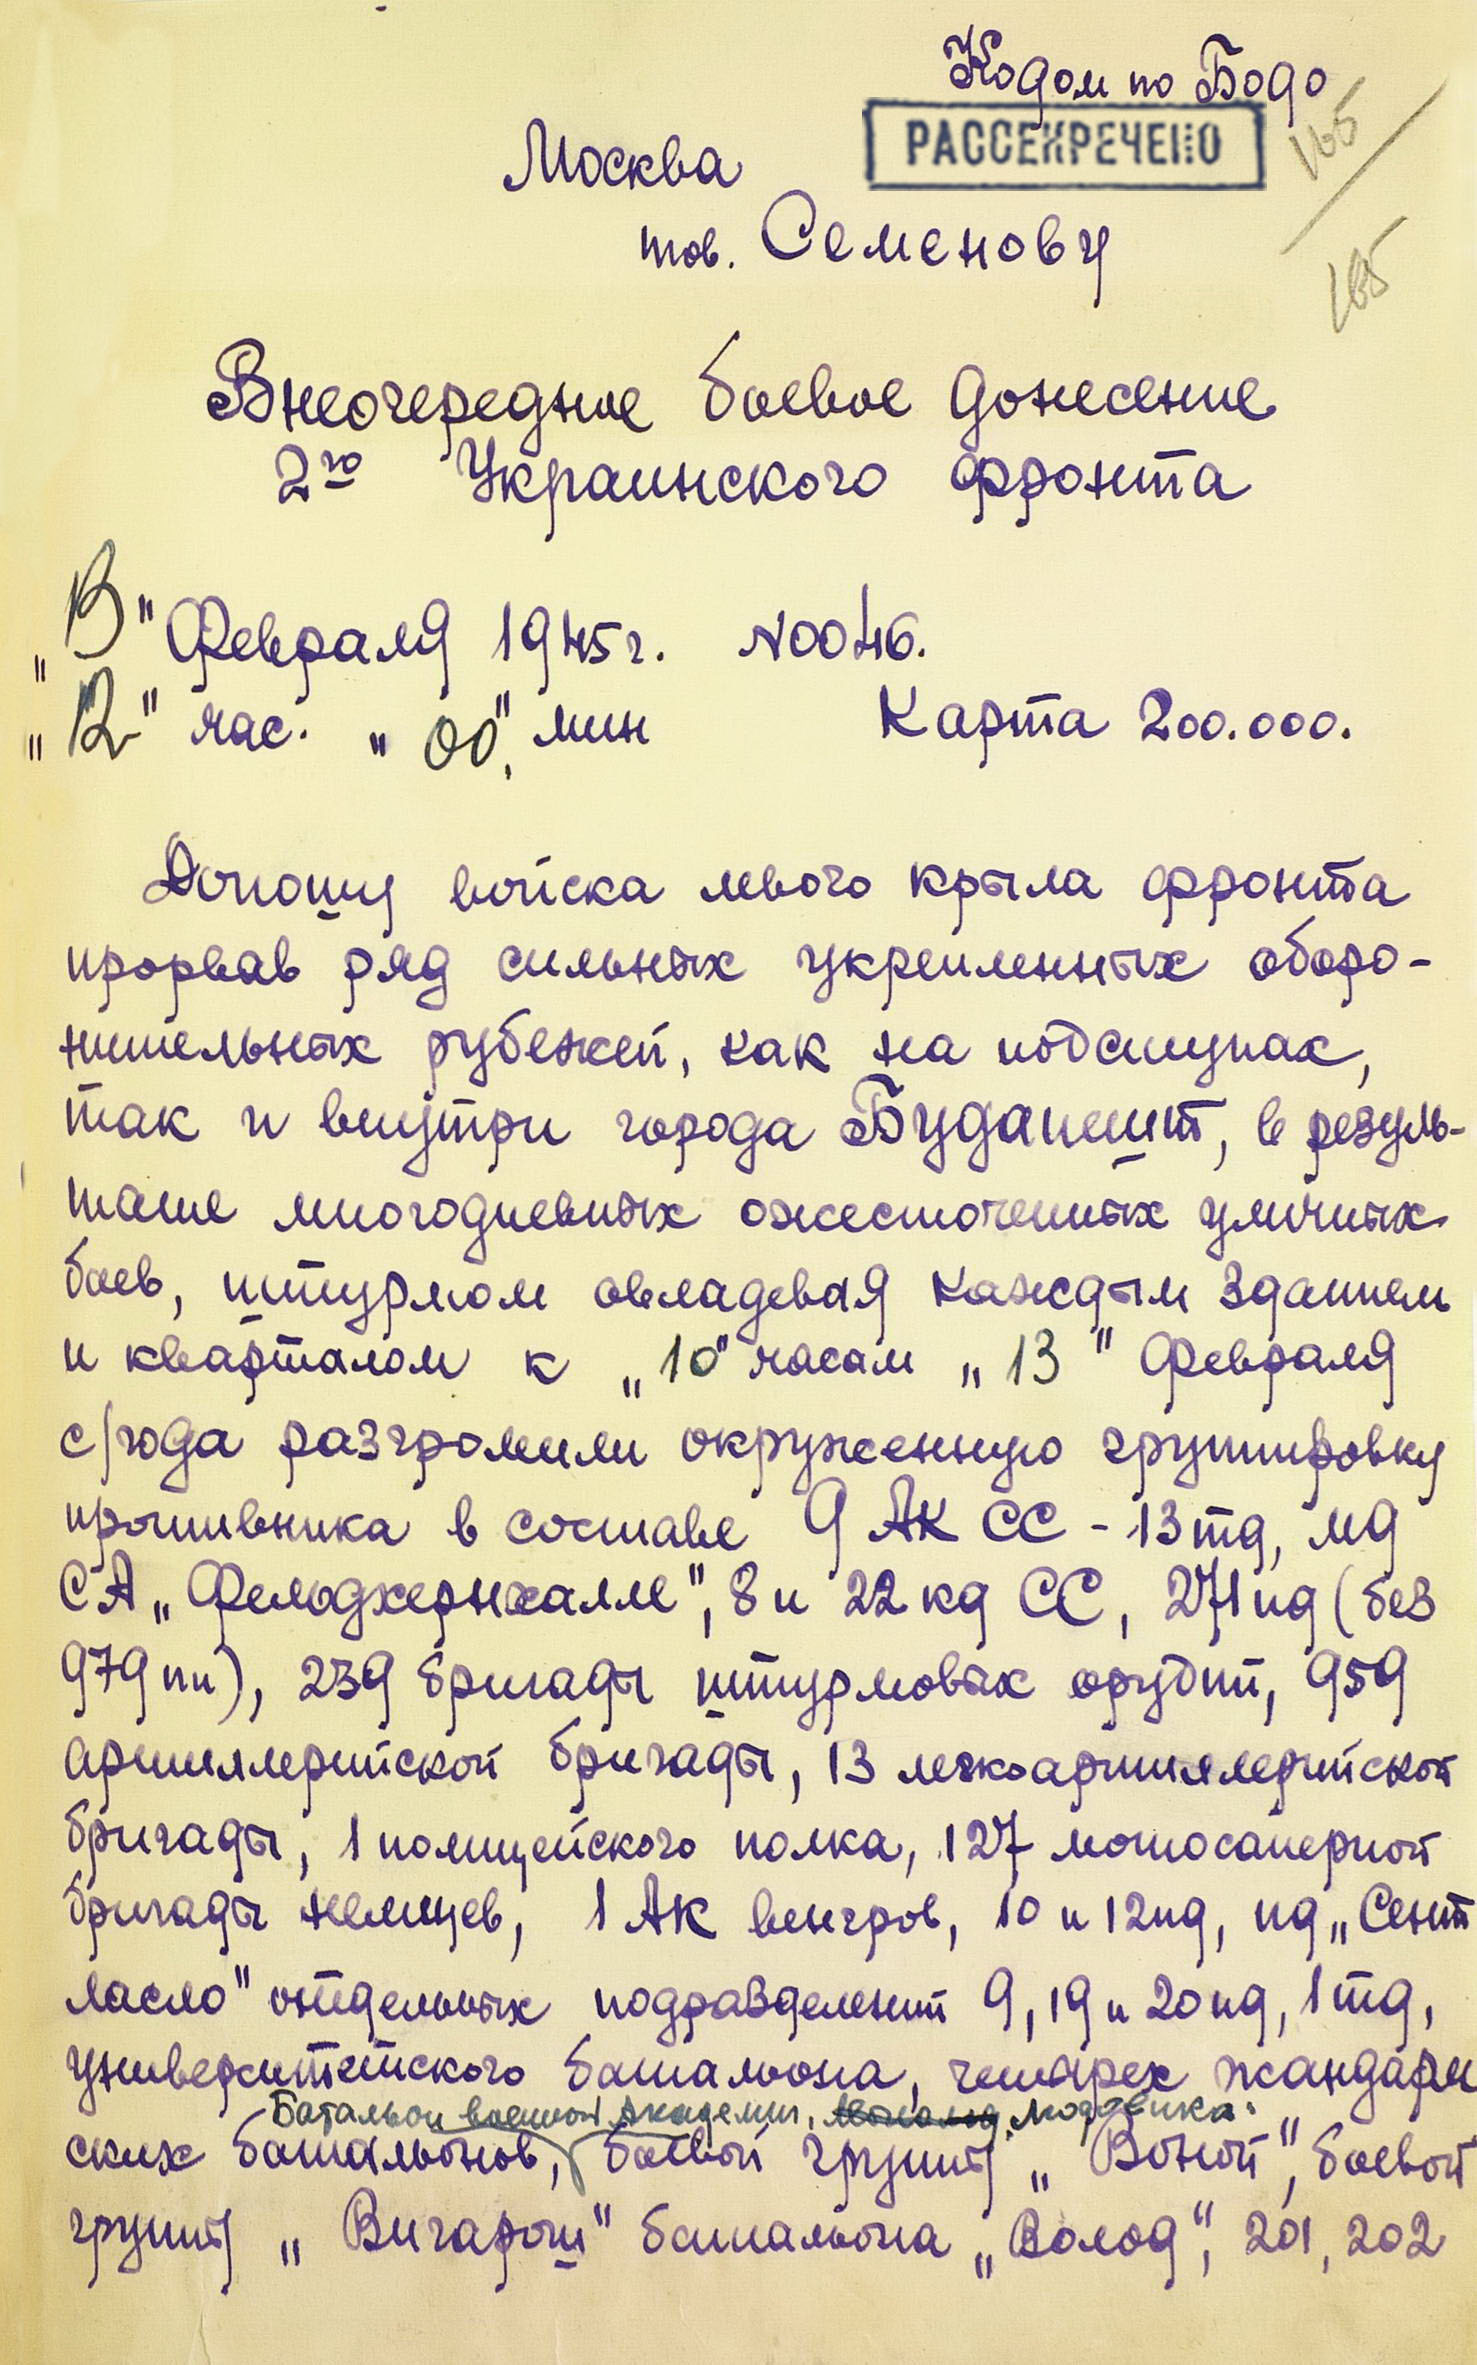 Кодом по Бодо
РАССЕКРЕЧЕНО
Москва
165
тов. Семенову
165
Внеочередное боевое донесение
2го Украинского фронта
„13" Февраля 1945г. №0046.
„12" час. „00" мин Карта 200.000.
Доношу войска левого крыла фронта
прорвав ряд сильных укрепленных оборо-
нительных рубежей, как на подступах,
так и внутри города Будапешт, в резуль-
тате многодневных ожесточенных уличных
боев, штурмом овладевая каждым зданием
и кварталом к „10" часам „13" Февраля
с/года разгромили окруженную группировку
противника в составе 9 АК СС - 13тд, мд
СА „Фельдхернхалле", 8 и 22 кд СС, 271пд (без
979пп), 239 бригады штурмовых орудий, 959
артиллерийской бригады, 13 легкоартиллерийской
бригады, 1 полицейского полка, 127 мотосаперной
бригады немцев, 1 АК венгров, 10 и 12пд, пд „Сент
ласло" отдельных подразделений 9, 19 и 20пд, 1тд,
университетского батальона, четырех жандарм
Батальон военной Академии,
ских батальонов, боевой группы „Воной", боевой
группы „Вигарош" батальона „Волод", 201, 202